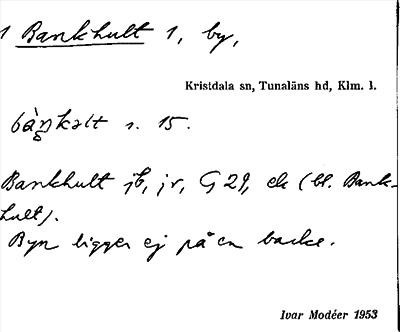 1 Bankhult 1, by,
Kristdala sn, Tunaläns hd, Klm. l.
bàŋ̥kəlt s. 15.
Bankhult jb, jr, G 29, ek (bl. Bank-
hult).
Byn ligger ej på en backe.
Ivar Modéer 1953